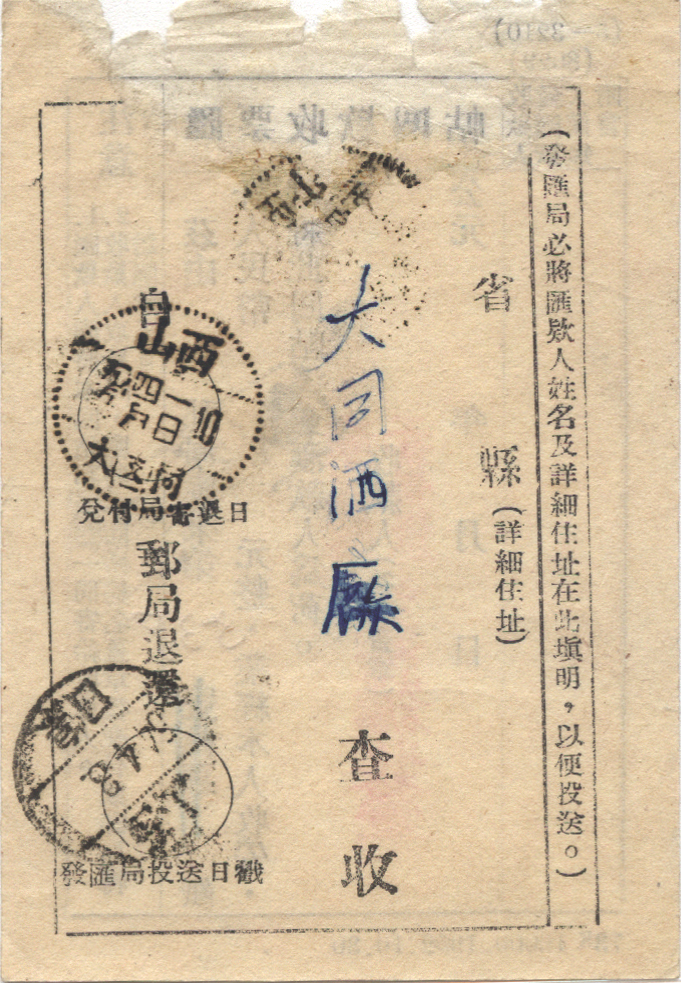 (發匯局必將匯欵人姓名及詳細住址在此塡明，以便投送。)
省 縣 (詳細住址)
大同洒廠 查收
自 郵局退還
山西
10
兌付局寄退日
發匯局投送日戳